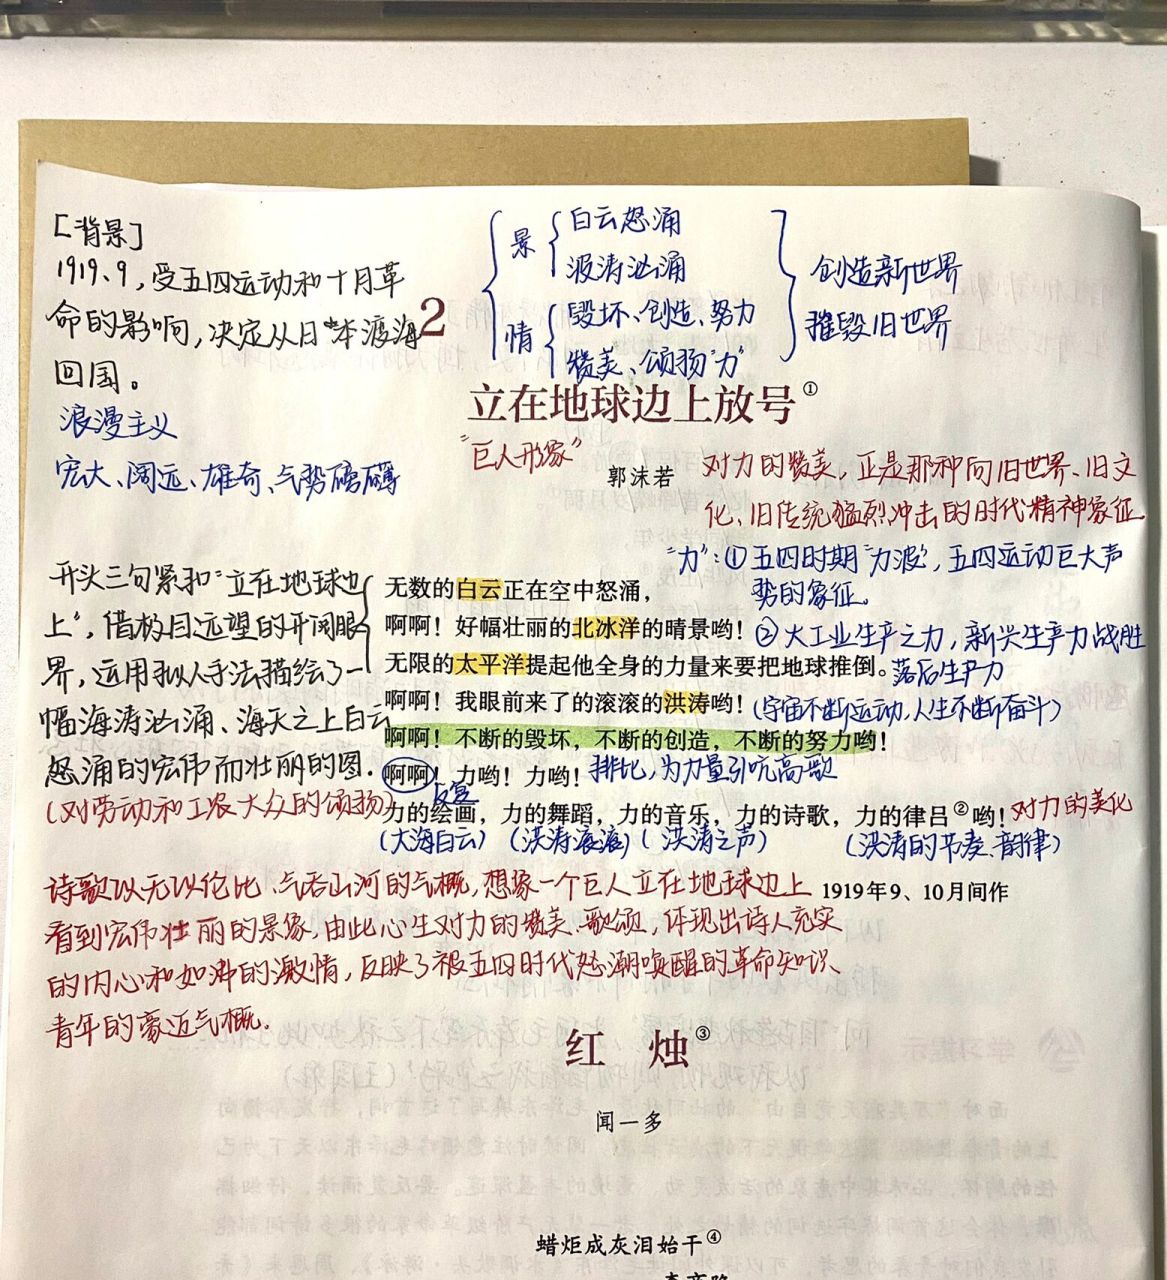 [背景]
1919、9，受五四运动和十月革
命的影响，决定从日本渡海
回国。
浪漫主义
宏大、阔远、雄奇、气势磅礴
2
景
白云怒涌
波涛汹涌
情
毁坏、创造、努力
赞美、颂扬“力”
创造新世界
摧毁旧世界
立在地球边上放号①
“巨人形象”
郭沫若
对力的赞美，正是那种向旧世界、旧文
化、旧传统猛烈冲击的时代精神象征
“力”：①五四时期“力波”，五四运动巨大声
势的象征。
②大工业生产之力，新兴生产力战胜
落后生产力
开头三句紧和“立在地球边
上”，借极目远望的开阔眼
界，运用拟人手法描绘了一
幅海涛汹涌、海天之上白云
怒涌的宏伟而壮丽的图.
(对劳动和工农大众的颂扬)
无数的白云正在空中怒涌，
啊啊！好幅壮丽的北冰洋的晴景哟！
无限的太平洋提起他全身的力量来要把地球推倒。
啊啊！我眼前来了的滚滚的洪涛哟！
(宇宙不断运动，人生不断奋斗)
啊啊！不断的毁坏，不断的创造，不断的努力哟！
啊啊！力哟！力哟！
排比，为力量引吭高歌
反复
力的绘画，力的舞蹈，力的音乐，力的诗歌，力的律吕②哟！
对力的美化
(大海白云) (洪涛滚滚) (洪涛之声) (洪涛的节奏、韵律)
1919年9、10月间作
诗歌以无以伦比、气吞山河的气概，想象一个巨人立在地球边上
看到宏伟壮丽的景象，由此心生对力的赞美、歌颂，体现出诗人充实
的内心和如沸的激情，反映了被五四时代怒潮唤醒的革命知识、
青年的豪迈气概.
红 烛③
闻一多
蜡炬成灰泪始干④